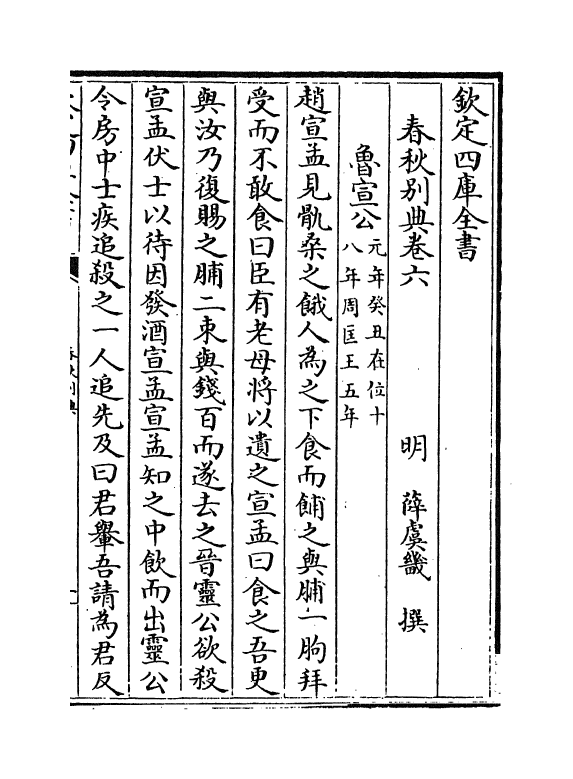 欽定四庫全書
春秋别典卷六
明 薛虞畿 撰
魯宣公元年癸丑在位十
八年周匡王五年
趙宣孟見骩桑之餓人為之下食而餔之與脯一朐拜
受而不敢食曰臣有老母將以遺之宣孟曰食之吾更
與汝乃復賜之脯二束與錢百而遂去之晉靈公欲殺
宣孟伏士以待因發酒宣孟宣孟知之中飲而出靈公
令房中士疾追殺之一人追先及曰君轝吾請為君反